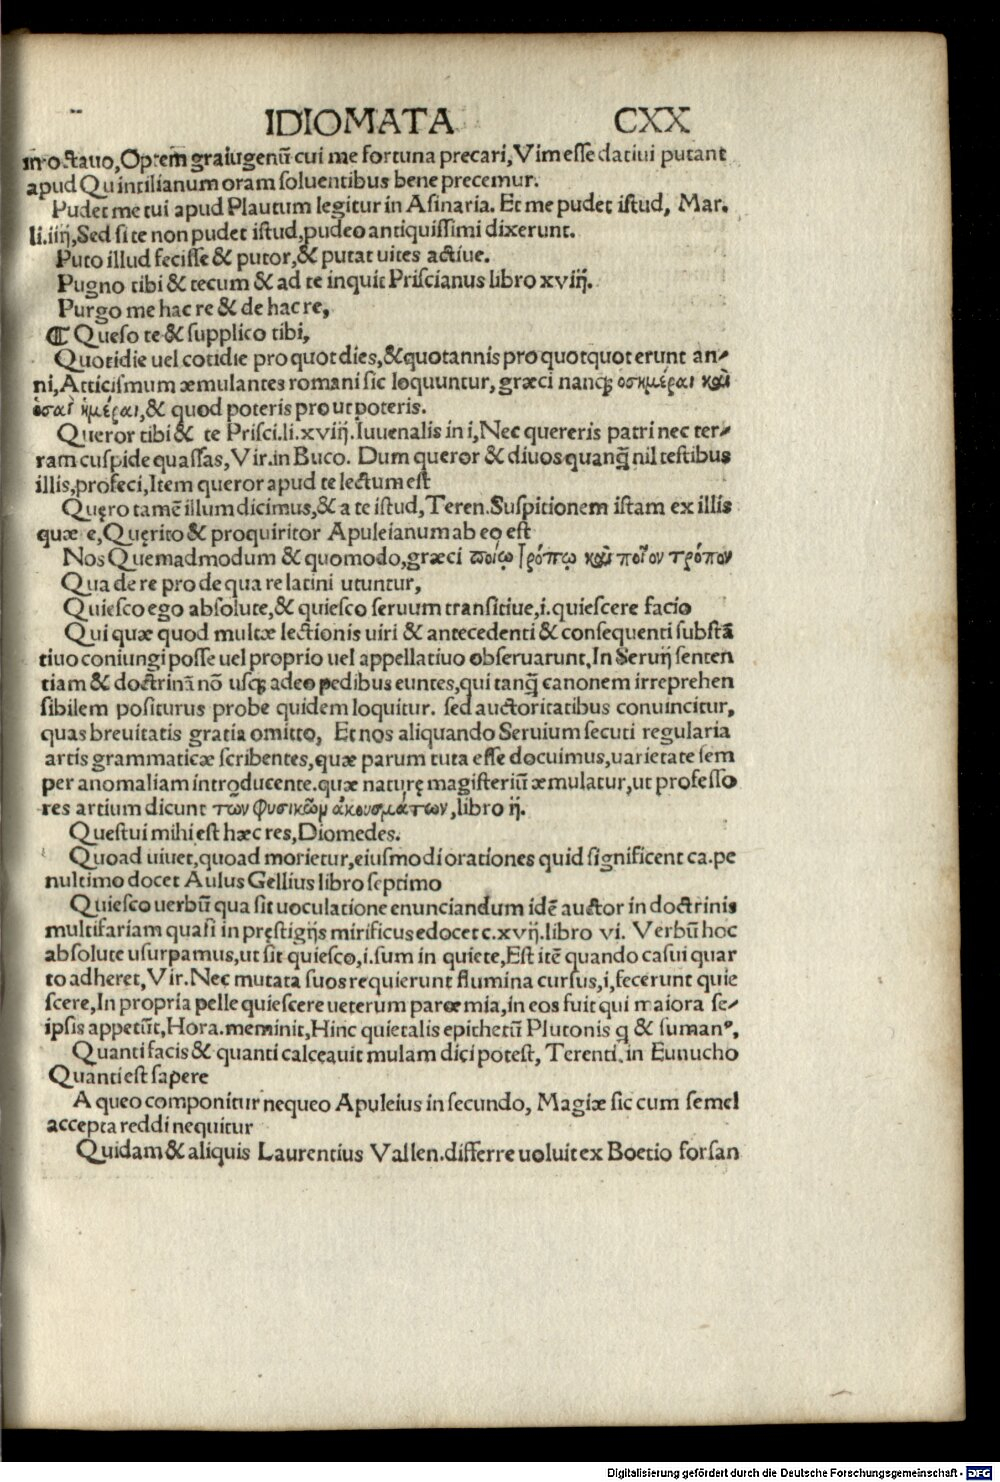 IDIOMATA CXX
in octauo,Optem graiugenū cui me fortuna precari,Vim esse datiui putant
apud Quintilianum oram soluentibus bene precemur.
Pudet me tui apud Plautum legitur in Asinaria. Et me pudet istud, Mar.
li.iiij,Sed si te non pudet istud,pudeo antiquissimi dixerunt.
Puto illud fecisse & putor,& putat uites actiue.
Pugno tibi & tecum & ad te inquit Priscianus libro xviij.
Purgo me hac re & de hac re,
¶ Queso te & supplico tibi,
Quotidie uel cotidie pro quot dies,& quotannis pro quotquot erunt an-
ni,Atticismum æmulantes romani sic loquuntur, græci nanqꝫ ὁσημέραι καὶ
ὁσαι ἡμέραι,& quod poteris pro ut poteris.
Queror tibi & te Prisci.li.xviij.Iuuenalis in i,Nec quereris patri nec ter-
ram cuspide quassas,Vir.in Buco. Dum queror & diuos quanq̄ nil testibus
illis,profeci,Item queror apud te lectum est
Quęro tamē illum dicimus,& a te istud, Teren.Suspitionem istam ex illis
quæ e,Quęrito & proquiritor Apuleianum ab eo est
Nos Quemadmodum & quomodo,græci ποίῳ τρόπῳ καὶ ποῖον τρόπον
Qua de re pro de qua re latini utuntur,
Quiesco ego absolute,& quiesco seruum transitiue,i.quiescere facio
Qui quæ quod multæ lectionis uiri & antecedenti & consequenti substā
tiuo coniungi posse uel proprio uel appellatiuo obseruarunt,In Seruij senten
tiam & doctrinā nō usqꝫ adeo pedibus euntes,qui tanq̄ canonem irreprehen
sibilem positurus probe quidem loquitur. sed auctoritatibus conuincitur,
quas breuitatis gratia omitto, Et nos aliquando Seruium secuti regularia
artis grammaticæ scribentes,quæ parum tuta esse docuimus,uarietate sem
per anomaliam introducente.quæ naturę magisteriū æmulatur,ut professo
res artium dicunt τῶν φυσικῶν ἀκουσμάτων,libro ij.
Questui mihi est hæc res,Diomedes.
Quoad uiuet,quoad morietur,eiusmodi orationes quid significent ca.pe
nultimo docet Aulus Gellius libro septimo
Quiesco uerbū qua sit uoculatione enunciandum idē auctor in doctrinis
multifariam quasi in pręstigijs mirificus edocet c.xvij.libro vi. Verbū hoc
absolute usurpamus,ut sit quiesco,i.sum in quiete,Est itē quando casui quar
to adheret,Vir.Nec mutata suos requierunt flumina cursus,i,fecerunt quie
scere,In propria pelle quiescere ueterum parœmia,in eos fuit qui maiora se-
ipsis appetūt,Hora.meminit,Hinc quietalis epithetū Plutonis q & sumanꝰ,
Quanti facis & quanti calceauit mulam dici potest, Terenti.in Eunucho
Quanti est sapere
A queo componitur nequeo Apuleius in secundo, Magiæ sic cum semel
accepta reddi nequitur
Quidam & aliquis Laurentius Vallen.differre uoluit ex Boetio forsan
Digitalisierung gefördert durch die Deutsche Forschungsgemeinschaft - DFG